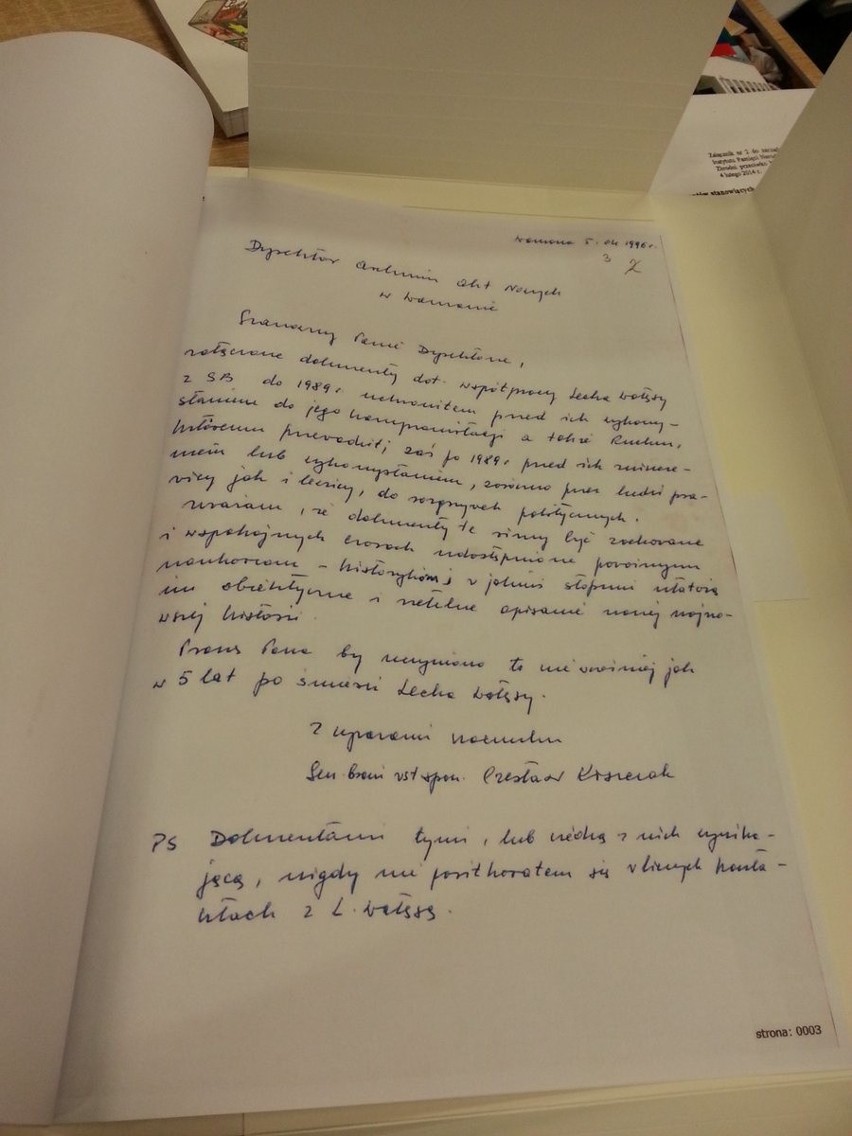 Załącznik nr 2 do
Instytutu Pamięci
Zbrodni przeciwko
4 lutego 2014 r.
stanowiących
Warszawa 5. 04 1996 r.
3 2
Dyrektor Archiwum Akt Nowych
w Warszawie
Szanowny Panie Dyrektorze,
załączone dokumenty dot. współpracy Lecha Wałęsy
z SB do 1989 r. uchroniłem przed ich wykorzy-
staniem do jego kompromitacji a także Ruchu,
któremu przewodził; zaś po 1989 r. przed ich zniszcze-
niem lub wykorzystaniem, zarówno przez ludzi pra-
wicy jak i lewicy, do rozgrywek politycznych.
Uważam, że dokumenty te winny być zachowane
i w spokojnych czasach udostępnione poważnym
naukowcom - historykom i w jakimś stopniu ułatwią
im obiektywne i rzetelne opisanie naszej najno-
wszej historii.
Proszę Pana by uczyniono to nie wcześniej jak
w 5 lat po śmierci Lecha Wałęsy.
Z wyrazami szacunku
Gen. broni w st. spocz. Czesław Kiszczak
PS Dokumentami tymi, lub wiedzą z nich wynika-
jącą, nigdy nie posiłkowałem się w licznych konta-
ktach z L. Wałęsą.
strona: 0003